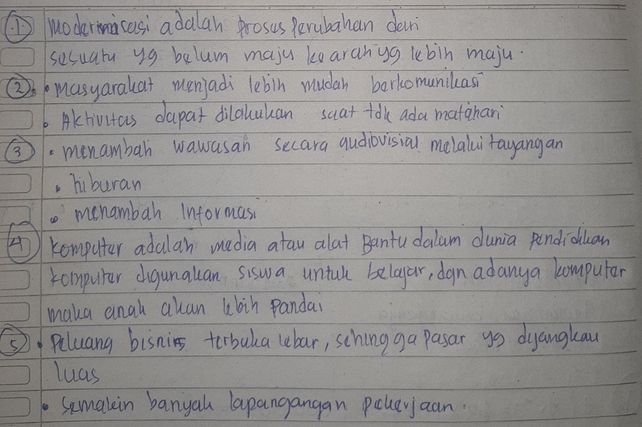 1. Modernisasi adalah proses perubahan dari
sesuatu yg belum maju ke arah yg lebih maju.
2. • Masyarakat menjadi lebih mudah berkomunikasi
• Aktivitas dapat dilakukan saat tdk ada matahari
3 • menambah wawasan secara audiovisial melalui tayangan
• hiburan
• menambah Informasi
4 Komputer adalah media atau alat Bantu dalam dunia Pendidikan
Komputer digunakan siswa untuk belajar, dgn adanya komputer
maka anak akan lebih Pandai
5 • Peluang bisnis terbuka lebar, sehingga Pasar yg dijangkau
luas
• Semakin banyak lapangangan pekerjaan.